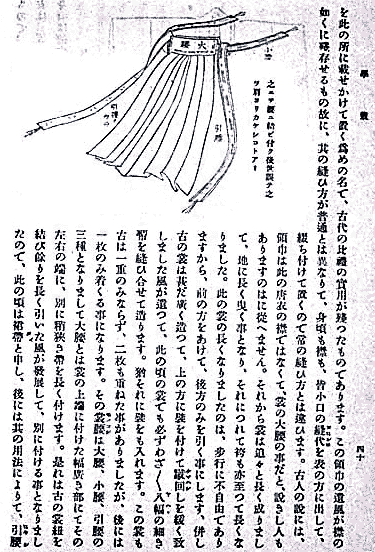 を此の所に載せかけて置く爲めの名で、古代の比禮の實用が殘つたものであります。この領巾の遺風が襟の
如くに殘存せるもの故に、其の縫ひ方が普通とは異なりて、身頃も襟も、皆小口の縫代を表の方に出して、
綴ち付けて置くので常の縫ひ方とは違ひます。古人の說には、
領巾は此の唐衣の襟ではなくて、裳の大腰の事だと、說きし人も
ありますのには從へません。それから裳は追々と長く成りまし
て、地に長く曳く事となり、それにつれて袴も亦至つて長くな
りました。此の裳の長くなりましたのは、步行に不自由であり
ますから、前の方をあけて、後方のみを引く事にします。併し
古の裳は甚だ廣く造つて、上の方に襞を付けて腰回しを緩く致
しました風が遺つて、此の頃の裳でも必ずわざ〱八幅の細き
帛を縫ひ合せて造ります。猶それに襞をも入れます。この裳も
古は一重のみならず、二枚も重ねた事がありましたが、後には
一枚のみ着くる事になります。その裳腰は大腰、小腰、引腰の
三種となりまして大腰とは裳の上端に付けた幅廣き部にてその
左右の端に、別に稍狹き帶を長く付けます。是れは古の裳紐を
結び餘りを長く引いた風が發展して、別に付ける事となりまし
たので、此の頃は裙帶と申し、後には其の用法によりて、引腰
四十
之ニテ腰ニ結ビ付ク後世誤テ之
ヲ肩ヨリカケシコトアリ
小腰
大腰
引腰
引腰ノウラ